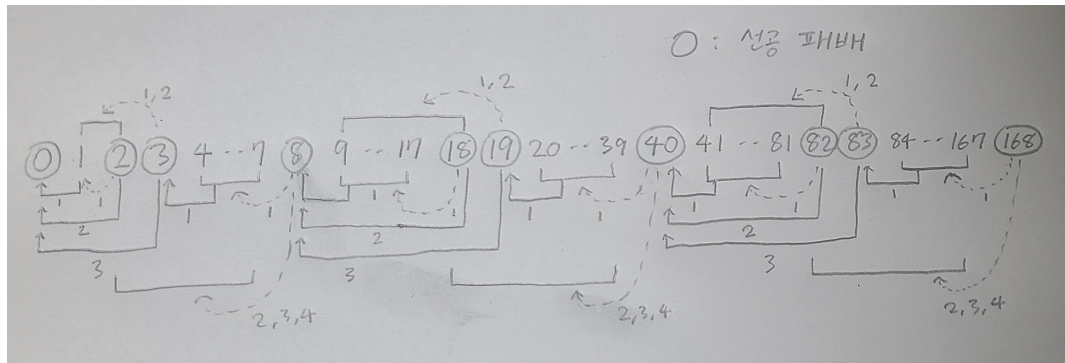 O : 선공 패배
1,2 1,2 1,2
0 1 2 3 4 ‥ 7 8 9 ‥ 17 18 19 20 ‥ 39 40 41 ‥ 81 82 83 84 ‥ 167 168
1 1 1 1 1 1 1 1 1 1 1 1
2 2 2
3 3 3
2,3,4 2,3,4 2,3,4